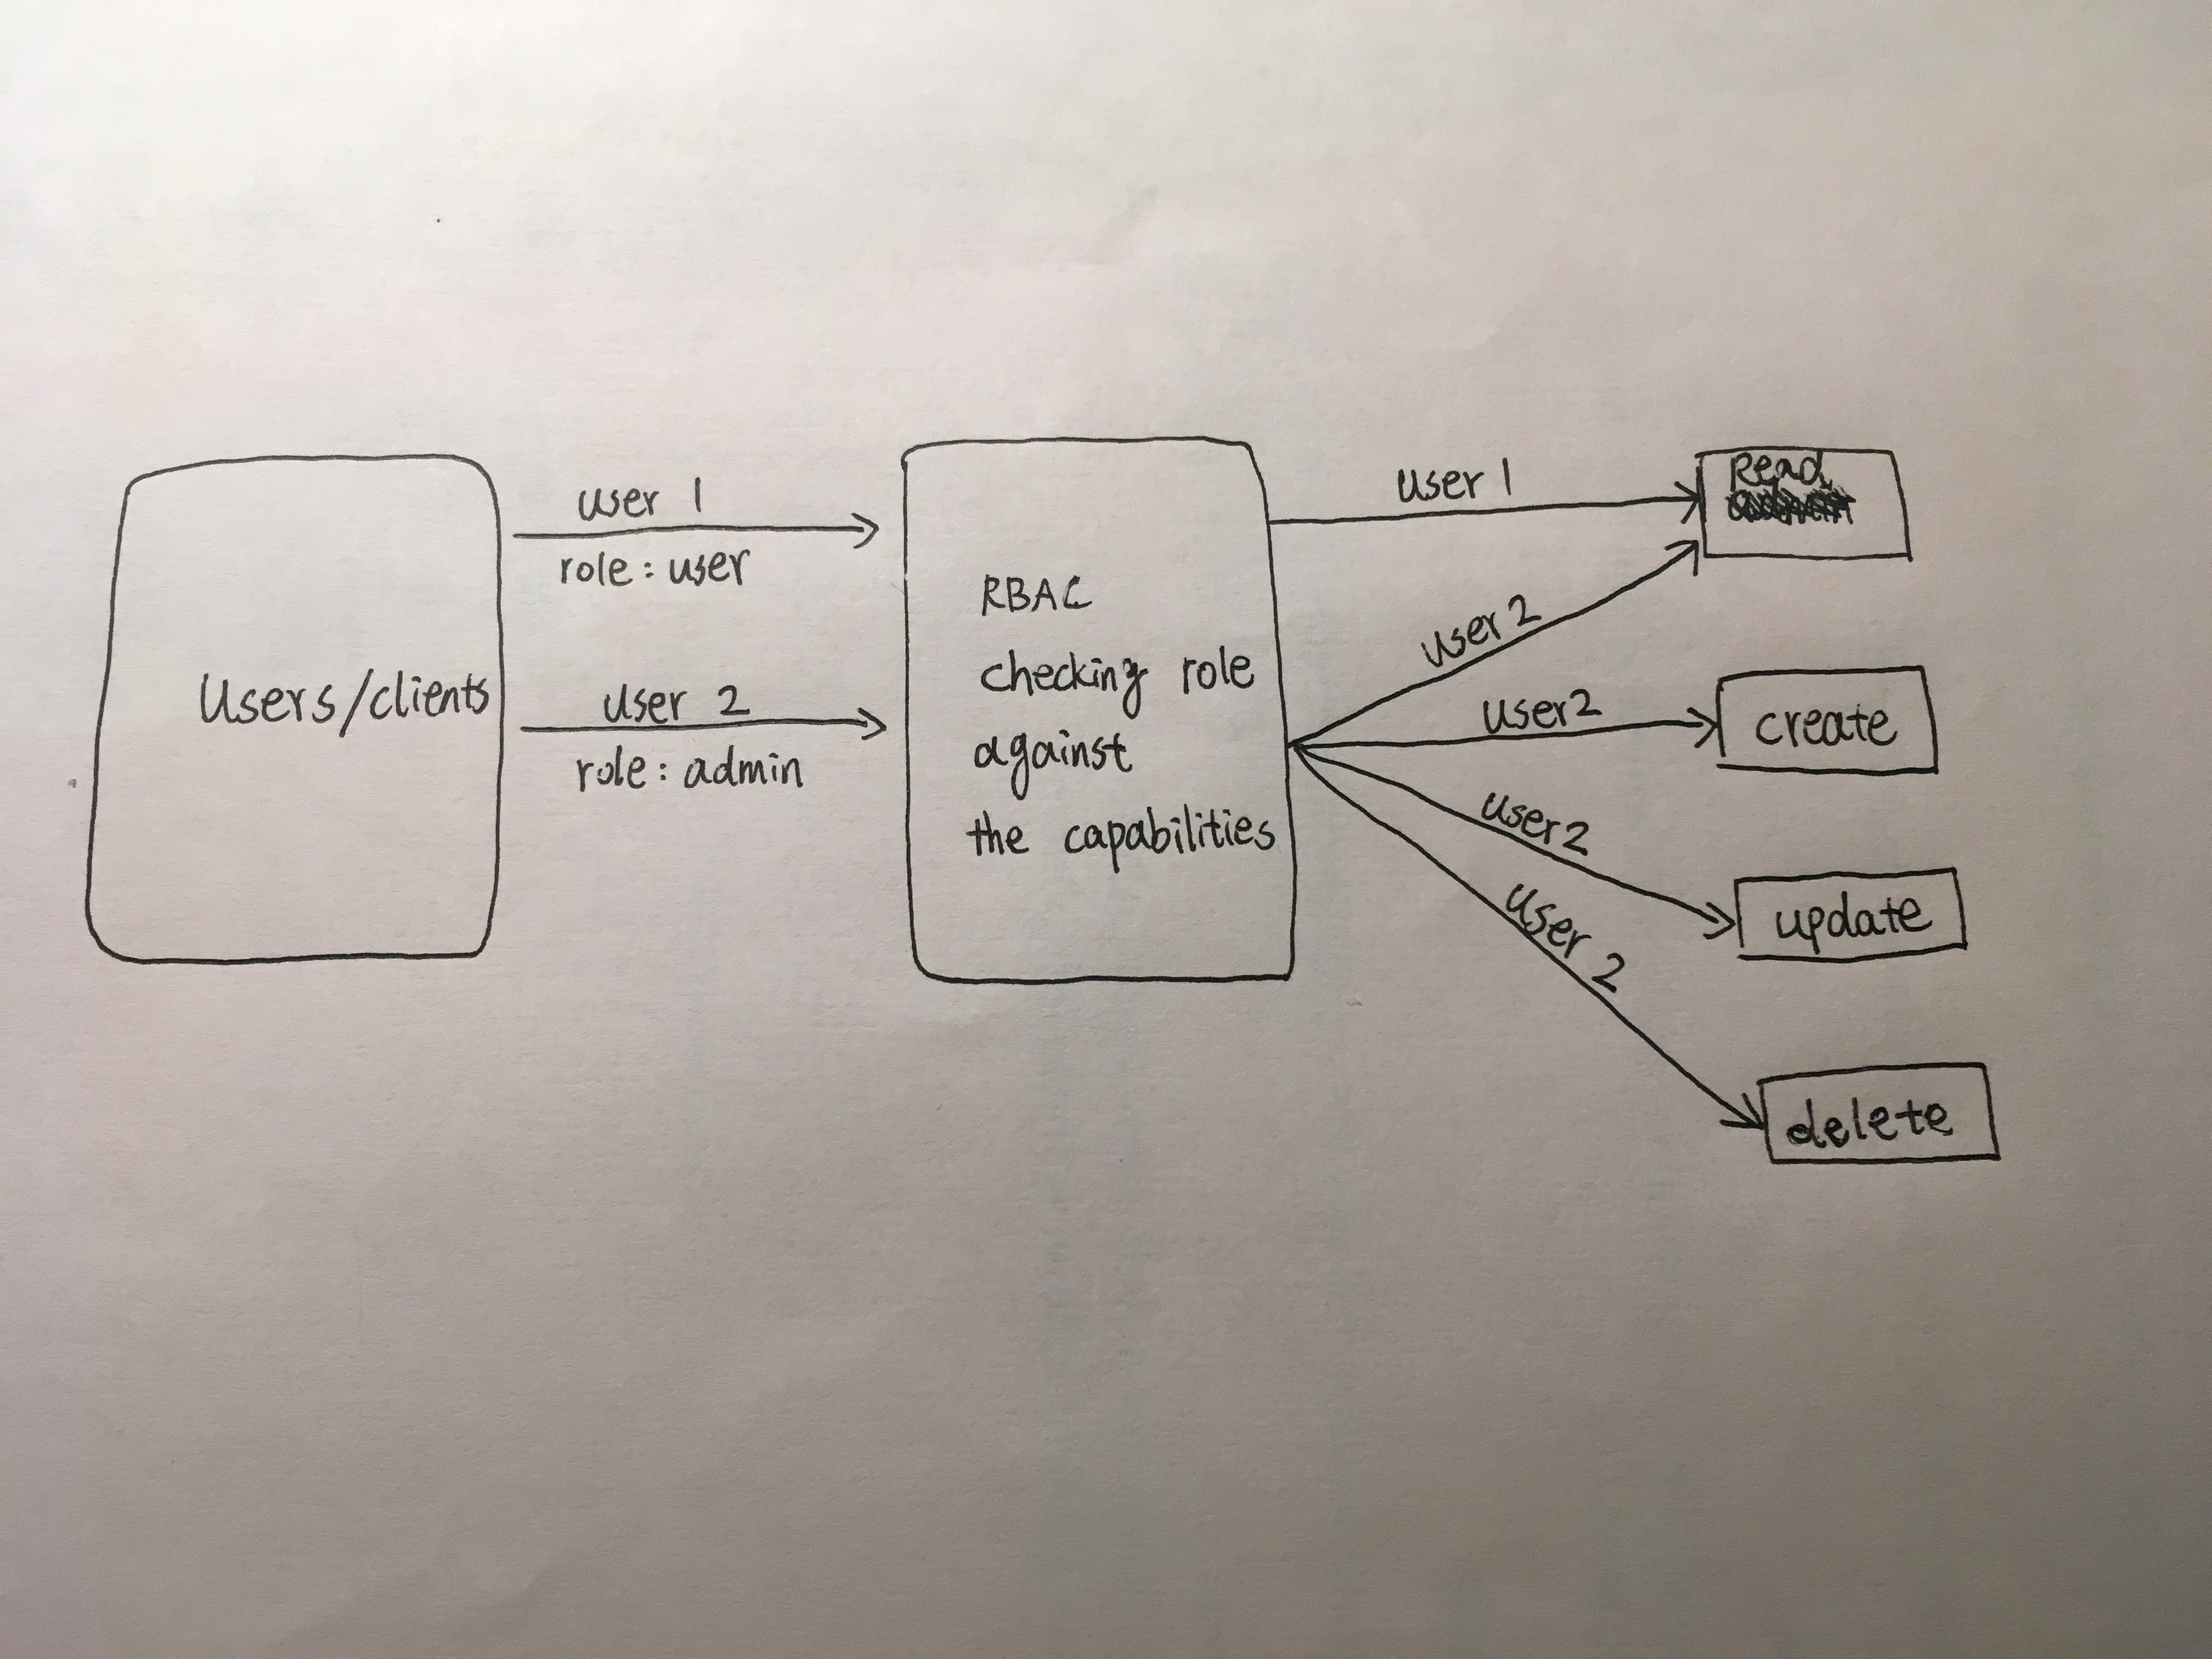 Users/clients
user 1
role: user
user 2
role: admin
RBAC
checking role
against
the capabilities
user 1
user 2
user2
user2
user 2
Read
create
update
delete